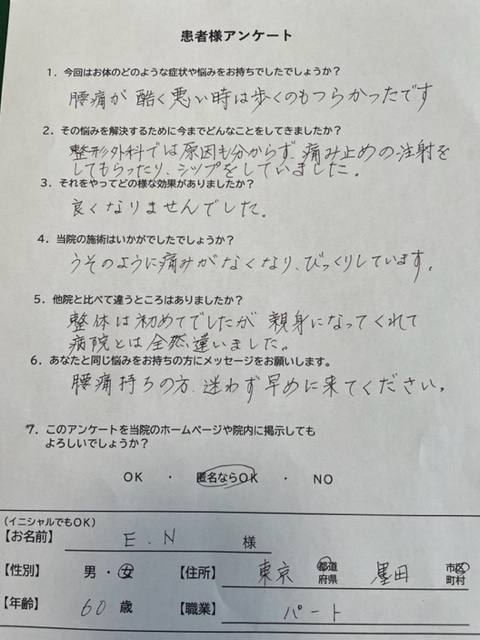 患者様アンケート
1．今回はお体のどのような症状や悩みをお持ちでしたでしょうか？
腰痛が酷く悪い時は歩くのもつらかったです
2．その悩みを解決するために今までどんなことをしてきましたか？
整形外科では原因も分からず、痛み止めの注射を
してもらったり、シップをしていました。
3．それをやってどの様な効果がありましたか？
良くなりませんでした。
4．当院の施術はいかがでしたでしょうか？
うそのように痛みがなくなり、びっくりしています。
5．他院と比べて違うところはありましたか？
整体は初めてでしたが親身になってくれて
病院とは全然違いました。
6．あなたと同じ悩みをお持ちの方にメッセージをお願いします。
腰痛持ちの方、迷わず早めに来てください。
7．このアンケートを当院のホームページや院内に掲示しても
よろしいでしょうか？
OK ・ 匿名ならOK ・ NO
（イニシャルでもOK）
【お名前】 E.N 様
【性別】 男・女 【住所】 東京 都道府県 墨田 市区町村
【年齢】 60 歳 【職業】 パート